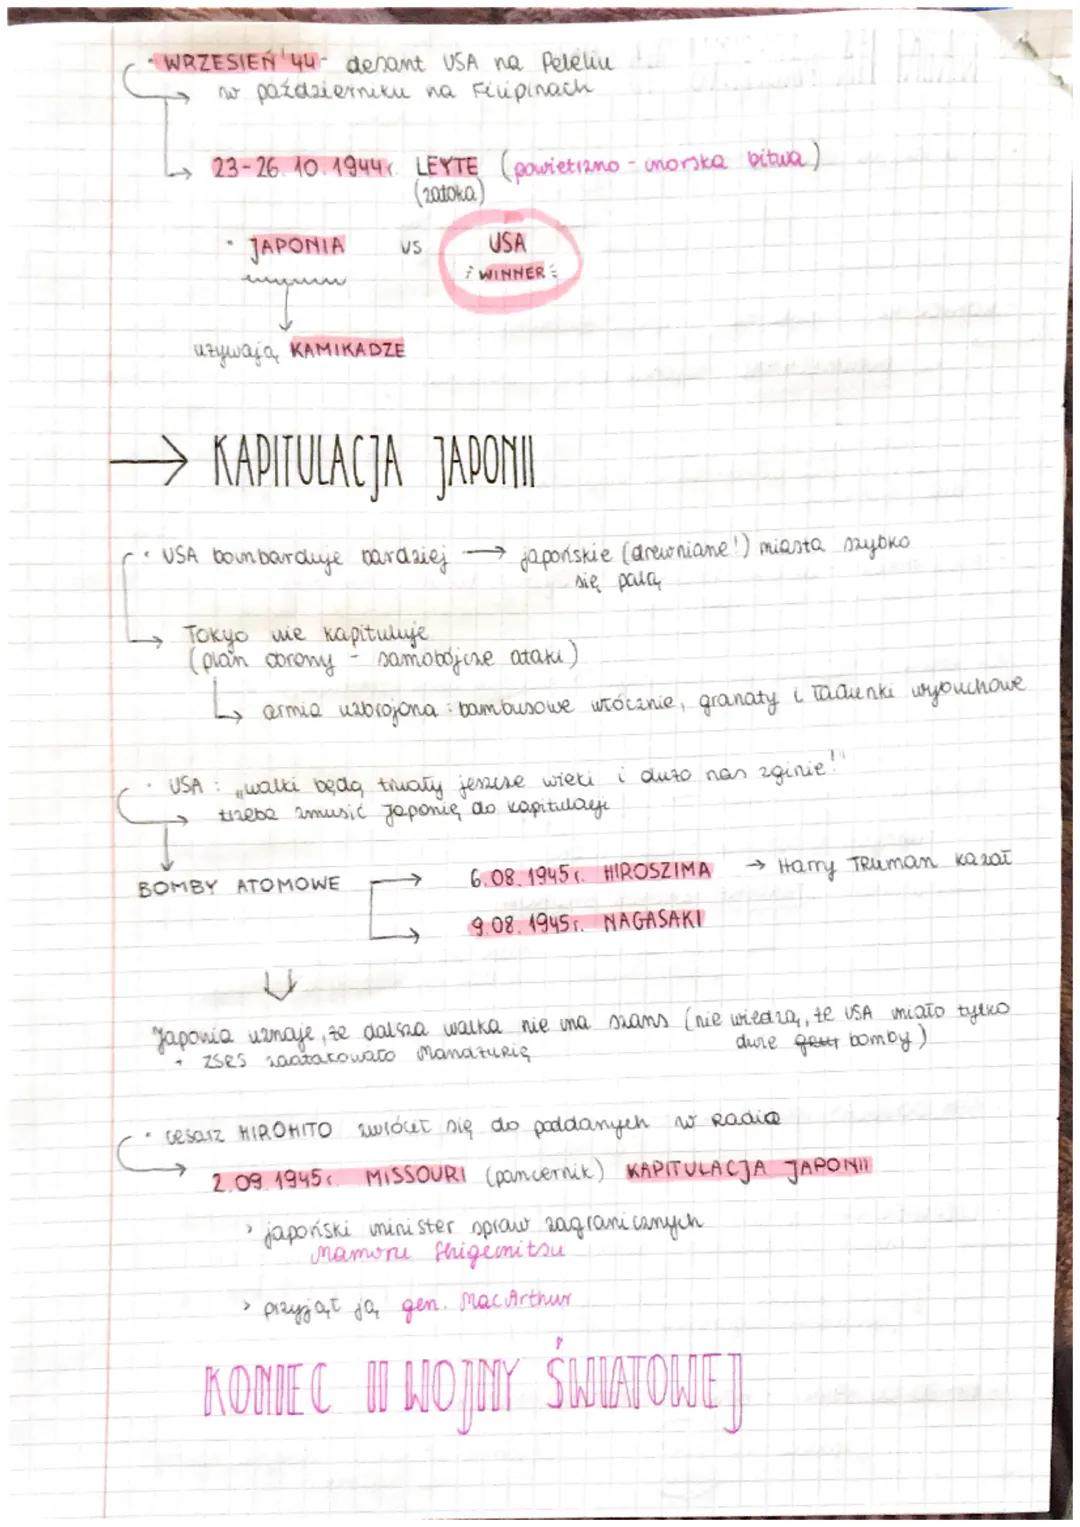 • WRZESIEŃ '44 - desant USA na Peleliu
→ w październiku na Filipinach
→ 23-26.10.1944r. LEYTE (powietrzno - morska bitwa)
(zatoka)
• JAPONIA vs USA
WINNER
używają KAMIKADZE
→ KAPITULACJA JAPONII
• USA bombarduje bardziej → japońskie (drewniane!) miasta szybko
się palą
→ Tokyo nie kapituluje
(plan obrony - samobójcze ataki)
→ armia uzbrojona : bambusowe włócznie, granaty i ładunki wybuchowe
• USA : „walki będą trwały jeszcze wieki i dużo nas zginie!"
→ trzeba zmusić Japonię do kapitulacji
BOMBY ATOMOWE → 6.08.1945r. HIROSZIMA → Harry Truman kazał
→ 9.08.1945r. NAGASAKI
Japonia uznaje, że dalsza walka nie ma szans (nie wiedzą, że USA miało tylko
+ ZSRS zaatakowało Mandżurię dwie bomby)
• cesarz HIROHITO zwrócił się do poddanych w Radio
→ 2.09.1945r. MISSOURI (pancernik) KAPITULACJA JAPONII
> japoński minister spraw zagranicznych
Mamoru Shigemitsu
> przyjął ją gen. MacArthur
KONIEC II WOJNY ŚWIATOWEJ